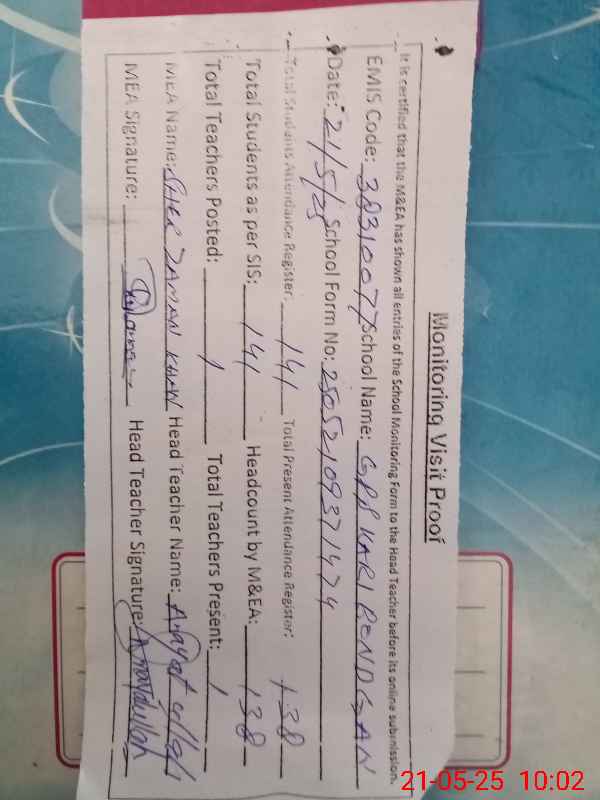 Monitoring Visit Proof
It is certified that the M&EA has shown all entries of the School Monitoring Form to the Head Teacher before its online submission.
EMIS Code: 38310077 School Name: GPS KARI BOND GAN
Date: 21/5/25 School Form No: 25052109371474
Total Students Attendance Register: 141 Total Present Attendance Register: 138
Total Students as per SIS: 141 Headcount by M&EA: 138
Total Teachers Posted: 1 Total Teachers Present: 1
MEA Name: SHER ZAMAN KHAN Head Teacher Name: Anayat ullah
MEA Signature: Head Teacher Signature: Anayatullah
21-05-25 10:02